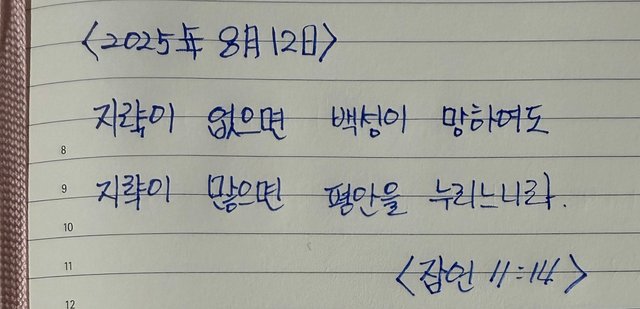 <2025年 8月 12日>
지략이 없으면 백성이 망하여도
8
지략이 많으면 평안을 누리느니라.
9
10
<잠언 11:14>
11
12